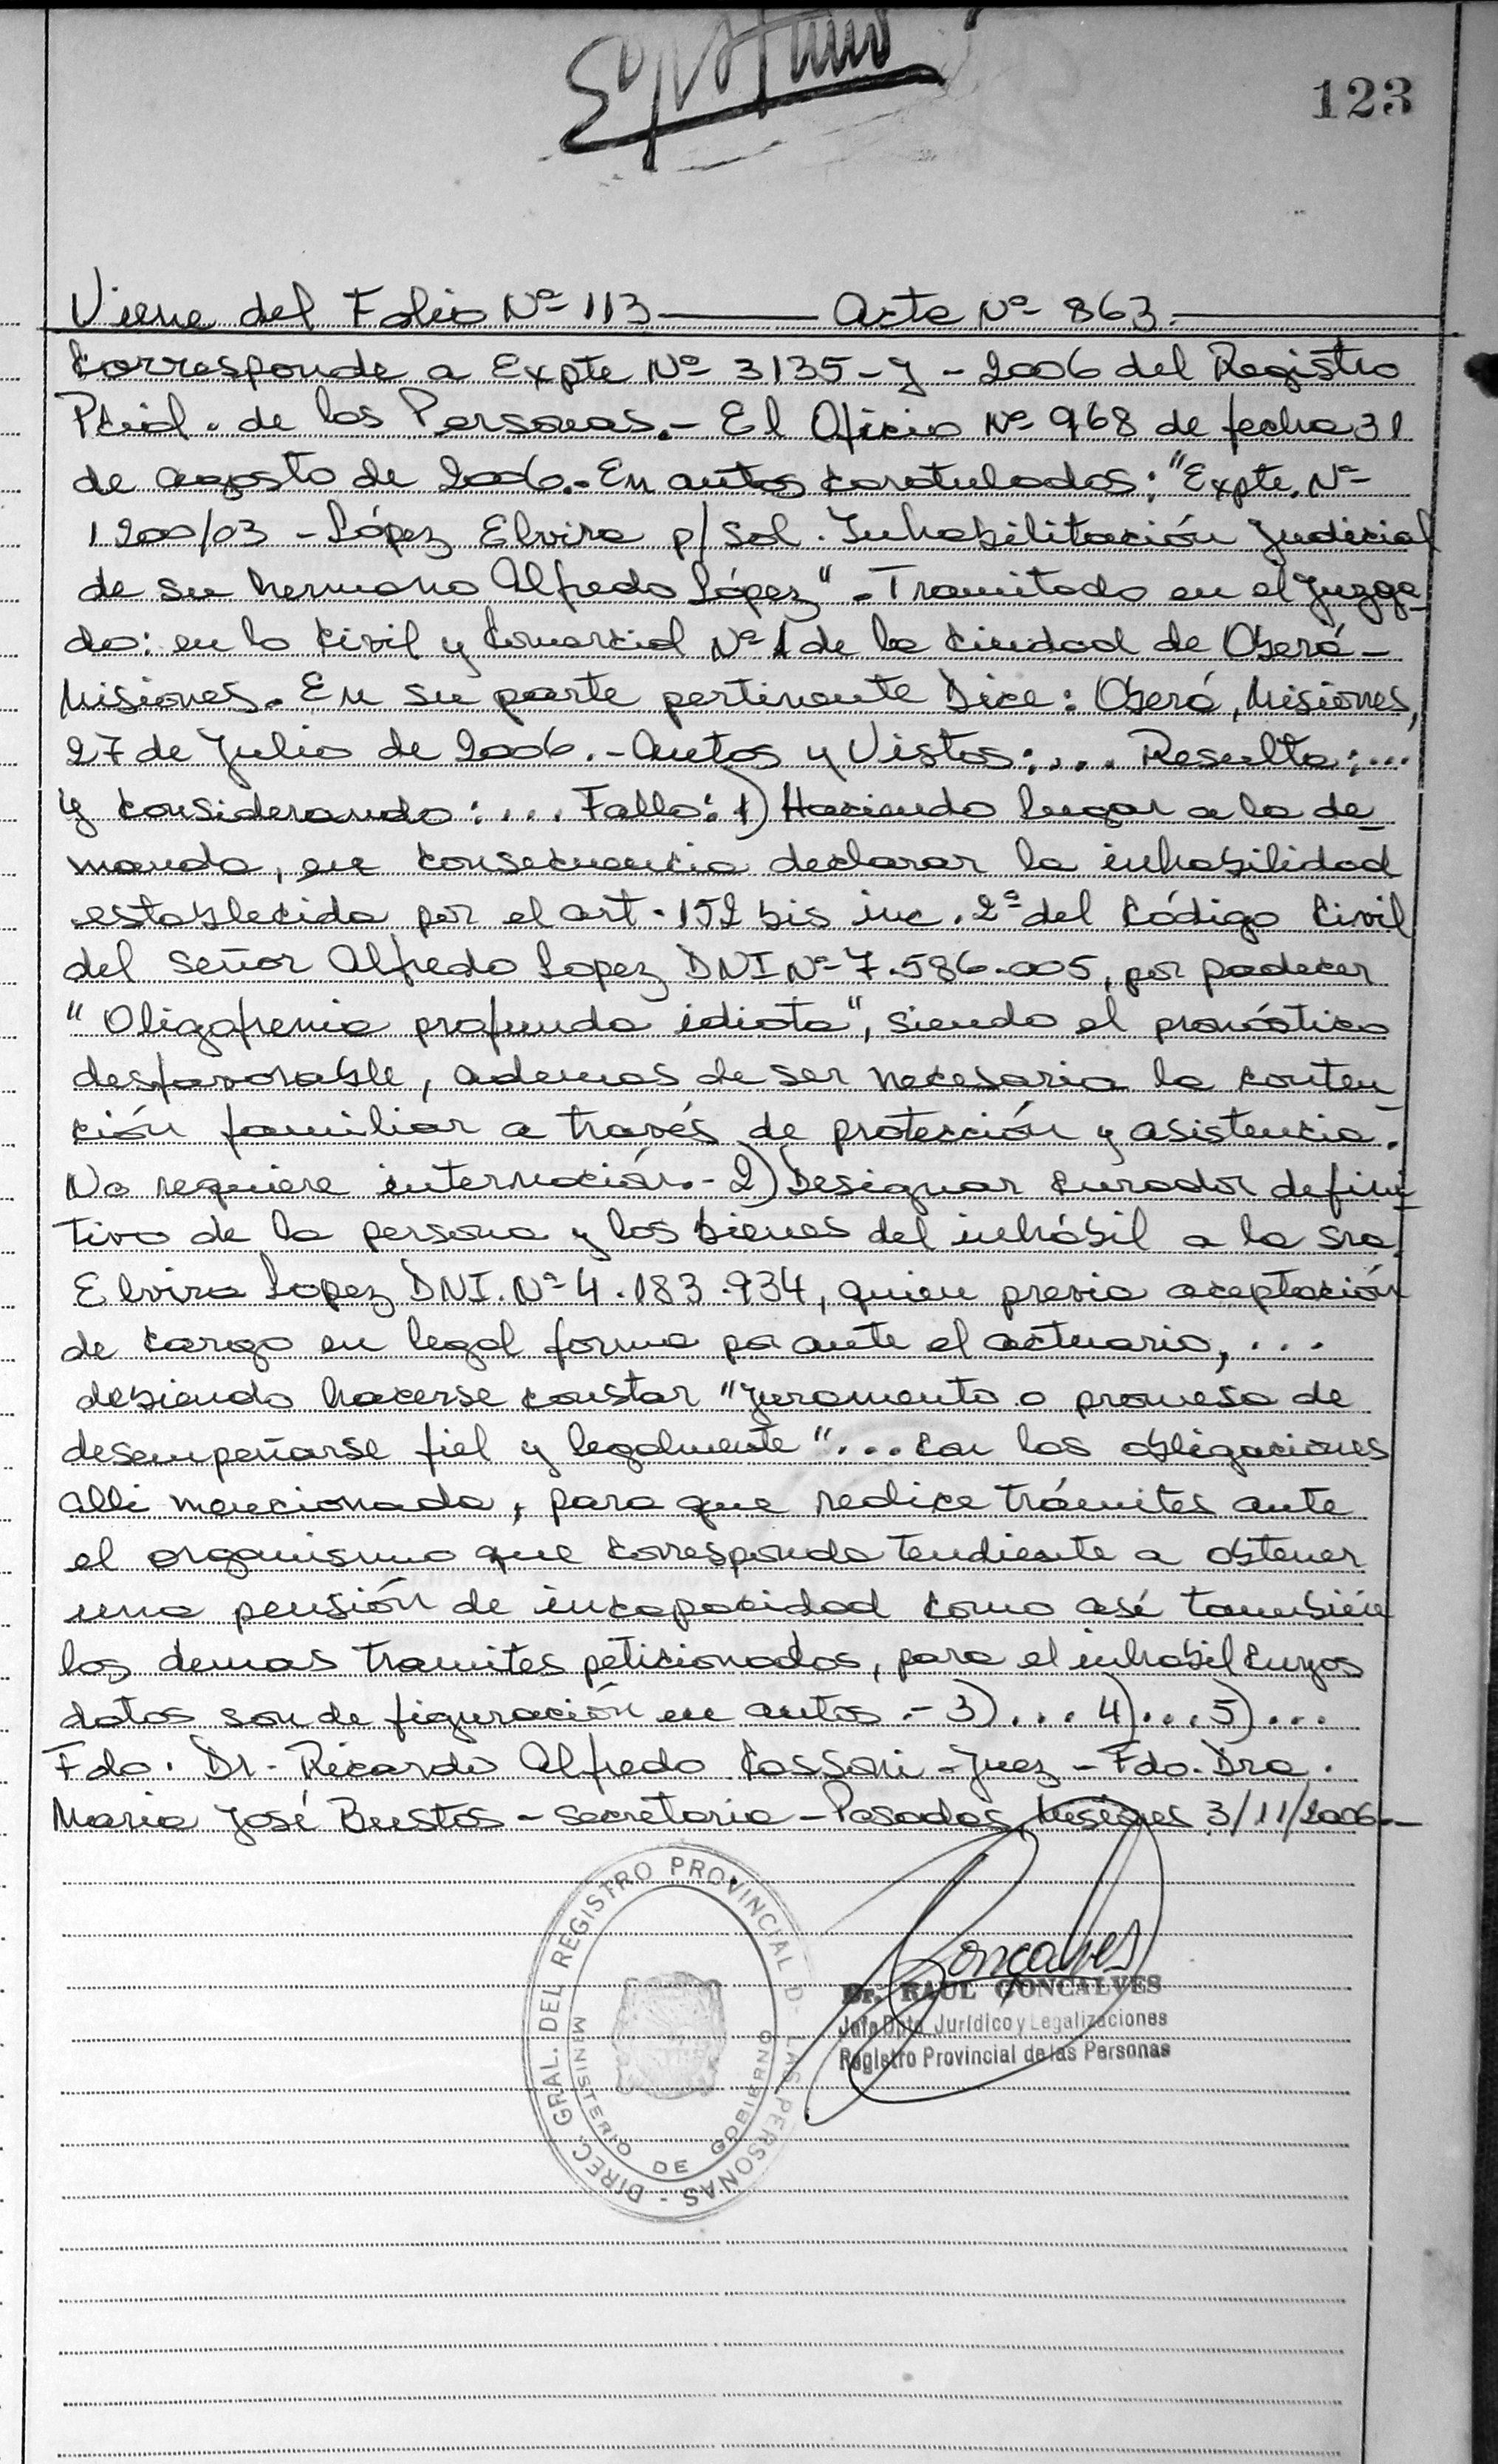 123
Viene del Folio Nº 113 ——— Acta Nº 863. ———
Corresponde a Expte Nº 3135-J-2006 del Registro
Pcial. de las Personas.- El Oficio Nº 968 de fecha 31
de agosto de 2006.- En autos caratulados: "Expte. Nº
1200/03 - López Elvira p/ Sol. Inhabilitación Judicial
de su hermano Alfredo López". Tramitado en el Juzga-
do: en lo Civil y Comercial Nº 1 de la Ciudad de Oberá-
Misiones. En su parte pertinente Dice: Oberá, Misiones,
27 de Julio de 2006.- Autos y Vistos:... Resulta:...
y considerando:... Fallo: 1) Haciendo lugar a la de-
manda, en consecuencia declarar la inhabilidad
establecida por el art. 152 bis inc. 2º del Código Civil
del señor Alfredo Lopez DNI Nº 7.586.005, por padecer
"Oligofrenia profunda idiota", siendo el pronóstico
desfavorable, ademas de ser necesaria la conten-
ción familiar a través de protección y asistencia.
No requiere internación.- 2) Designar curador defini-
tivo de la persona y los bienes del inhábil a la sra.
Elvira Lopez DNI. Nº 4.183.934, quien previa aceptación
de cargo en legal forma por ante el actuario, ...
debiendo hacerse constar "juramento o promesa de
desempeñarse fiel y legalmente"... con las obligaciones
alli mencionada, para que realice trámites ante
el organismo que corresponda tendiente a obtener
una pensión de incapacidad como asi también
los demas tramites peticionados, para el inhabil cuyos
datos son de figuración en autos.- 3)... 4)... 5)...
Fdo. Dr. Ricardo Alfredo Cassoni - Juez - Fdo. Dra.
Maria José Bustos - secretaria - Posadas, Misiones 3/11/2006.-
DIREC. GRAL. DEL REGISTRO PROVINCIAL D- LAS PERSONAS -
MINISTERIO DE GOBIERNO
Goncalves
Dr. RAUL GONCALVES
Jefe Dpto. Jurídico y Legalizaciones
Registro Provincial de las Personas